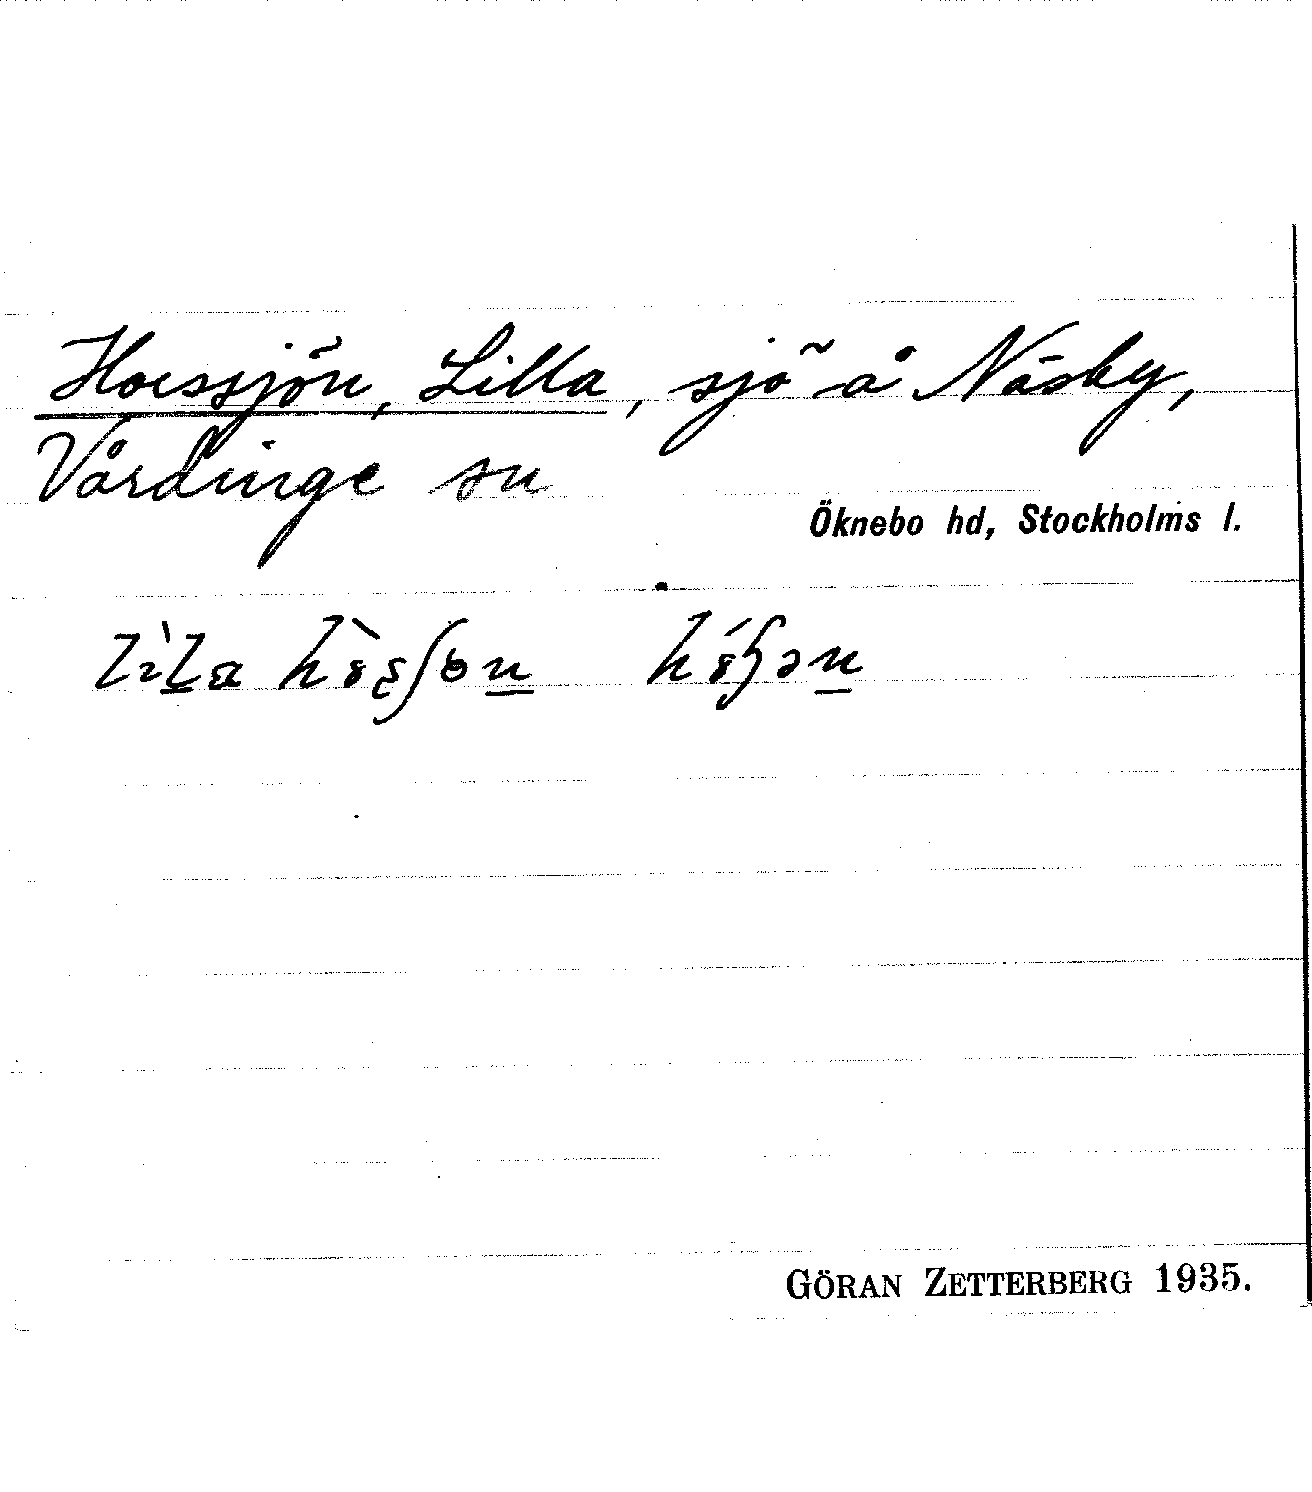 Hoessjön, Lilla, sjö å Näsby,
Vårdinge sn
Öknebo hd, Stockholms l.
GÖRAN ZETTERBERG 1935.